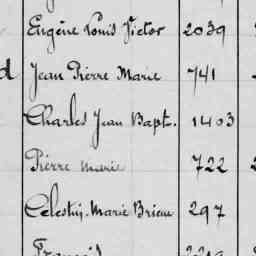 Eugène Louis Victor 2039
d Jean Pierre Marie 741
Charles Jean Bapt. 1403
Pierre Marie 722
Célestin-Marie Brieuc 297
François